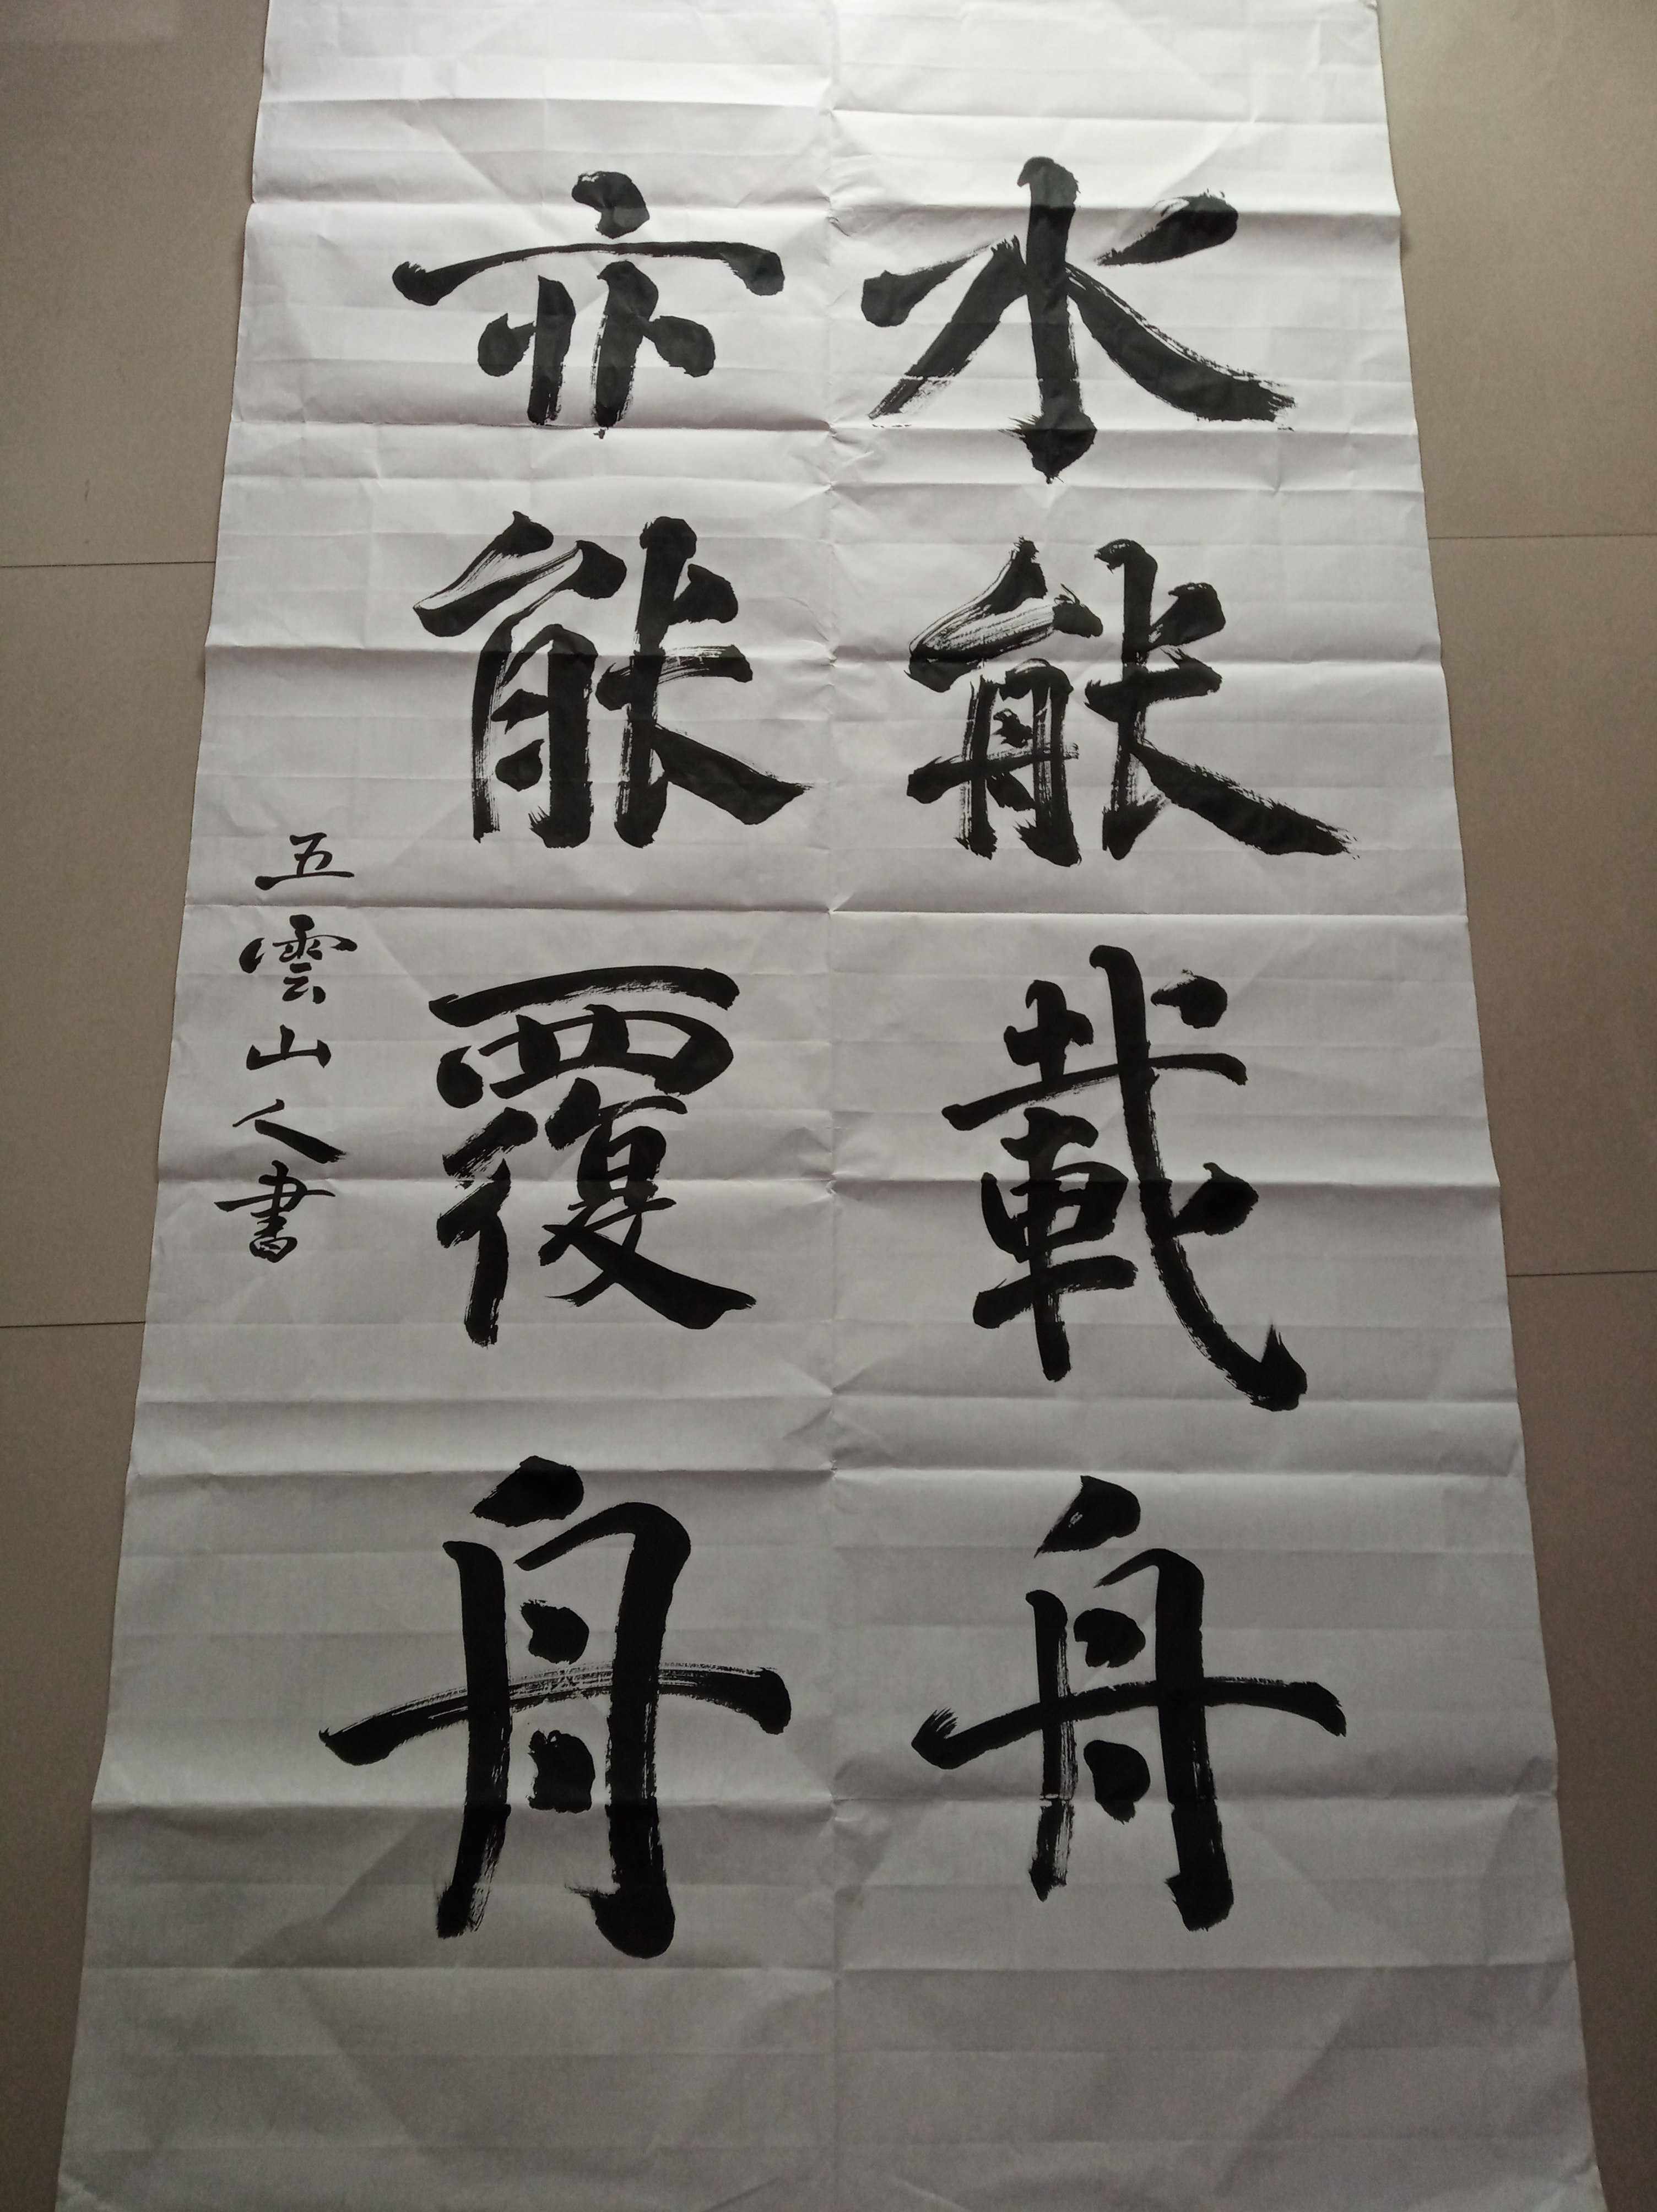 水能載舟
亦能覆舟
五雲山人書